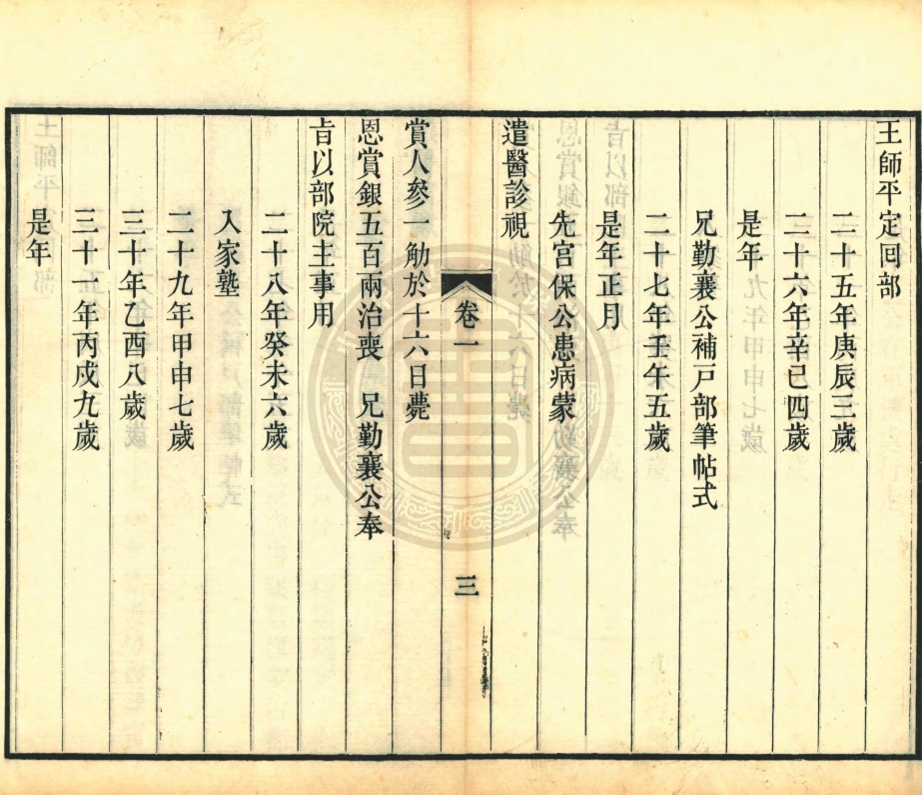 王師平定回部
二十五年庚辰三歲
二十六年辛巳四歲
是年
兄勤襄公補戸部筆帖式
二十七年壬午五歲
是年正月
先宫保公患病蒙
遣醫診視
卷一
三
賞人參一觔於十六日薨
恩賞銀五百兩治喪 兄勤襄公奉
旨以部院主事用
二十八年癸未六歲
入家塾
二十九年甲申七歲
三十年乙酉八歲
三十五年丙戍九歲
是年